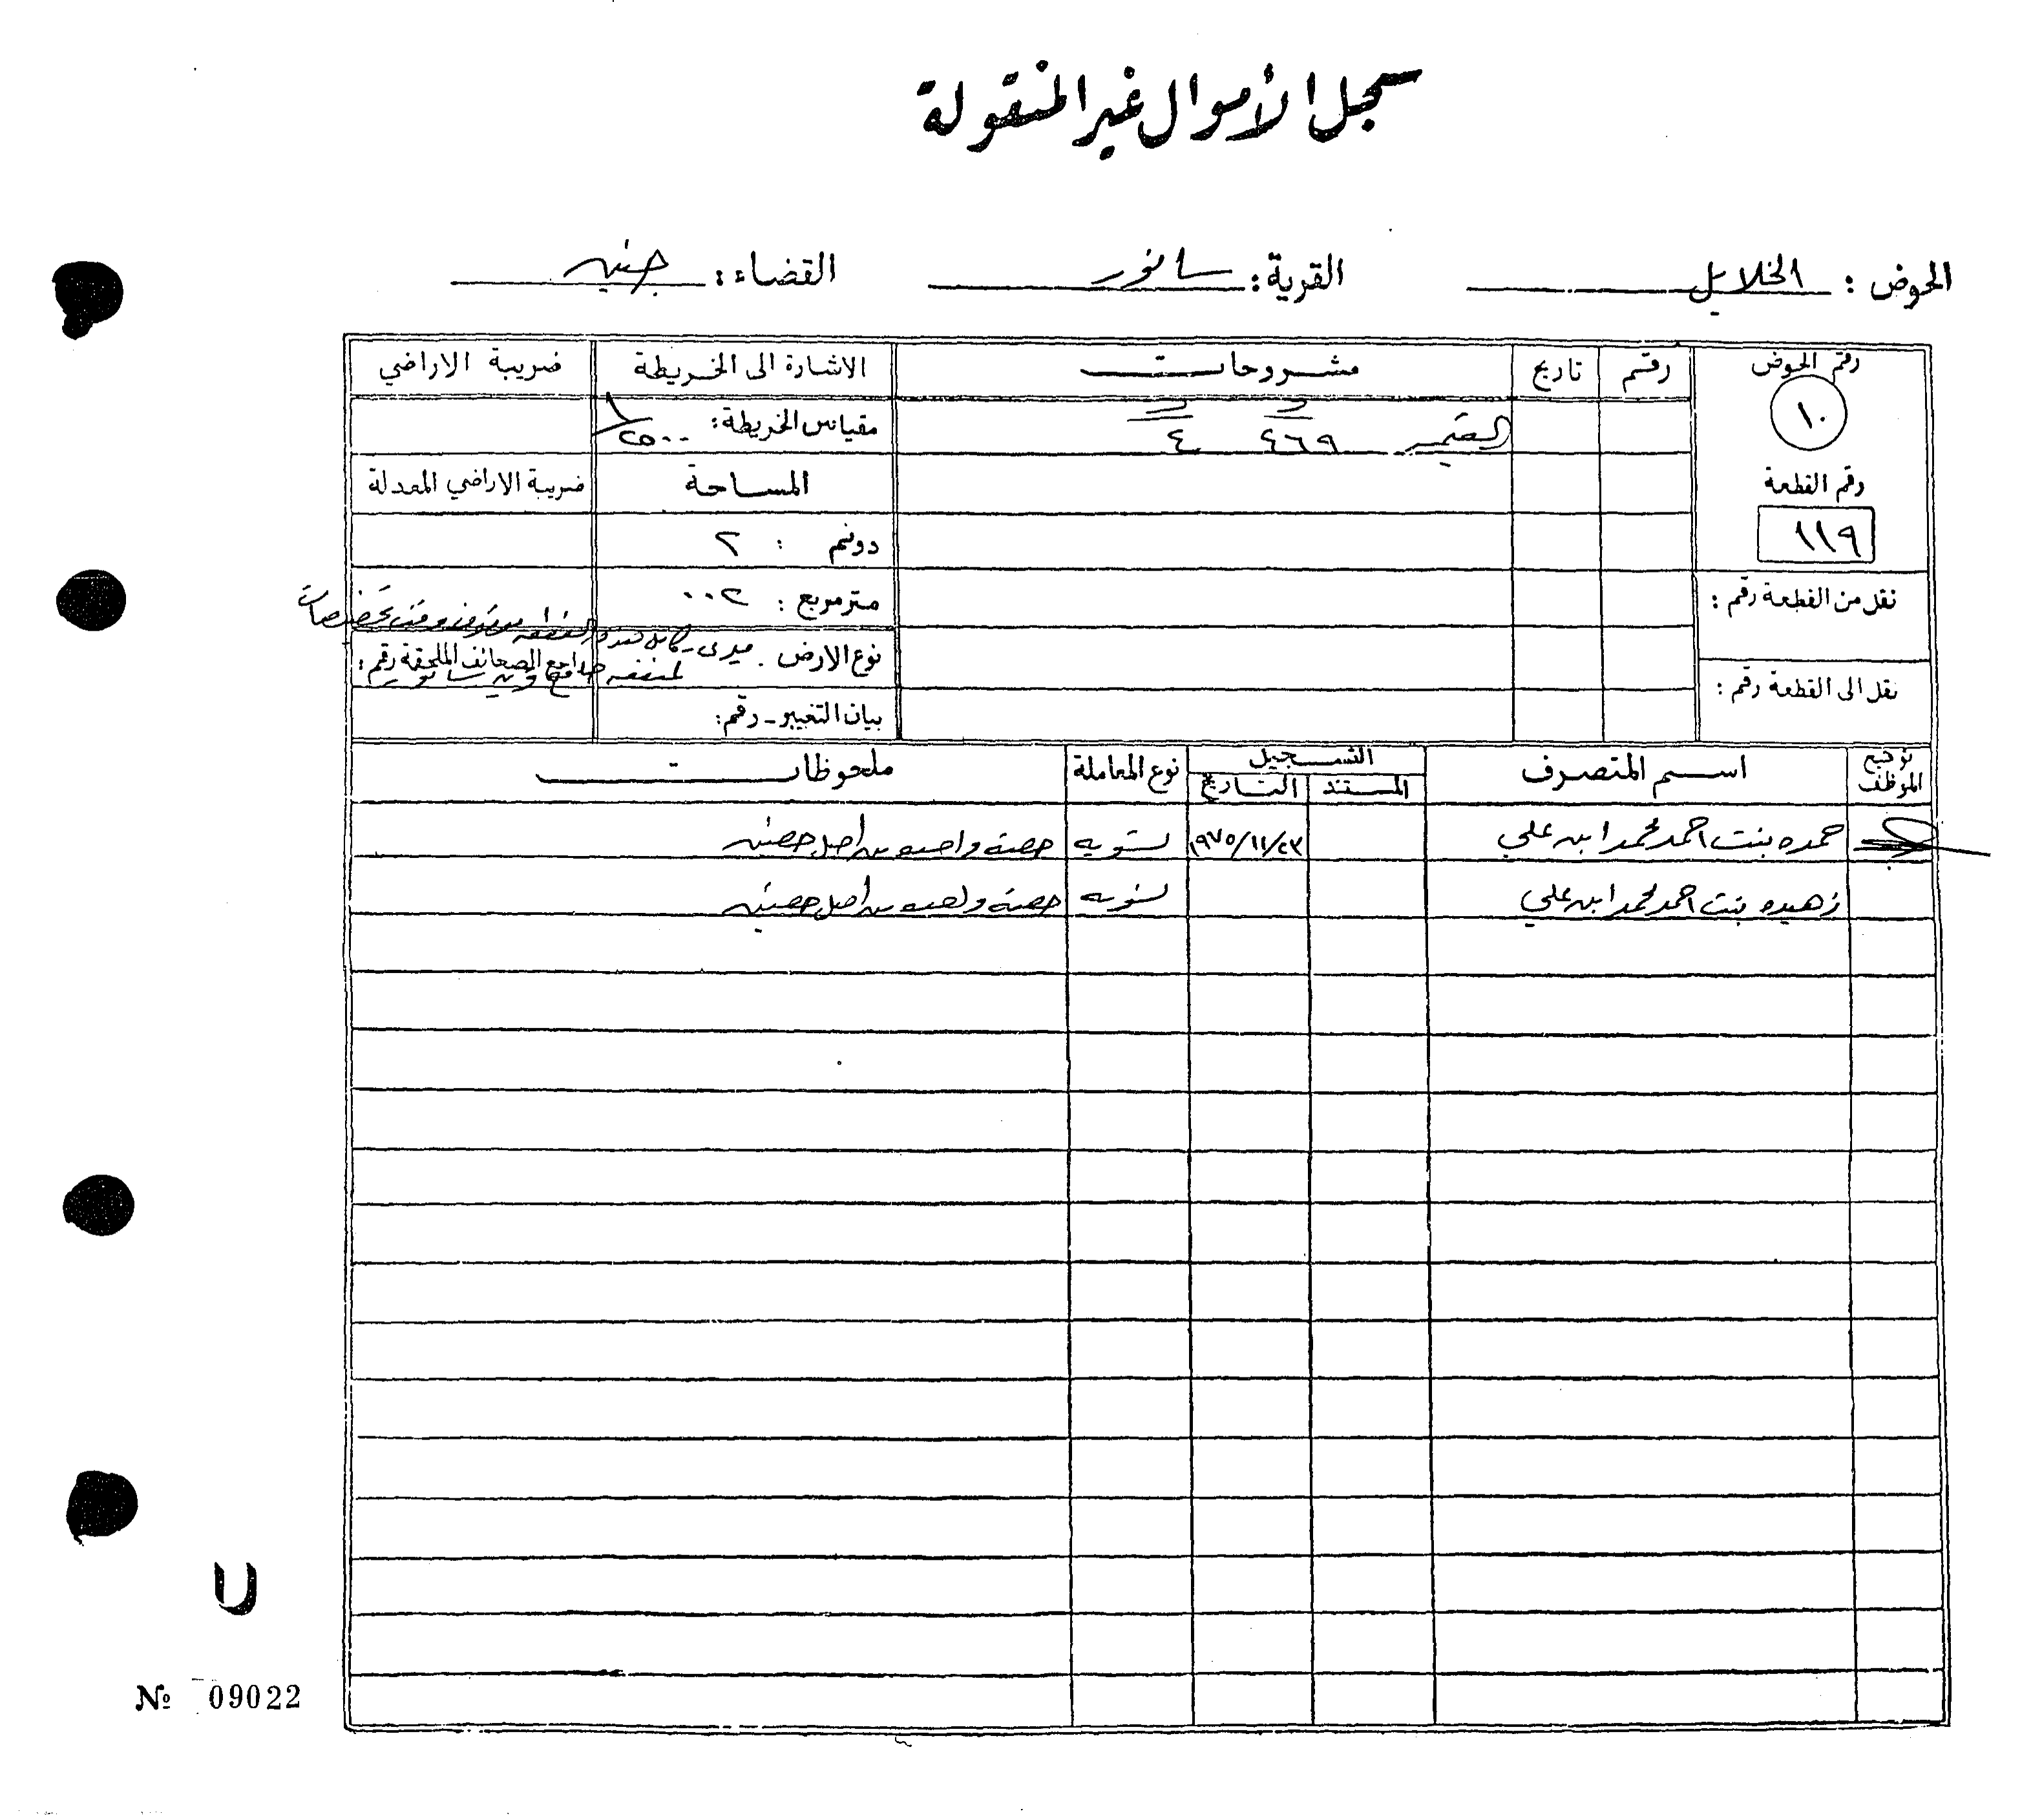 سجل الأموال غير المنقولة
الحوض : الخلايل القرية : سانور القضاء : جنين
رقم الحوض رقم تاريخ مشروحات الاشارة الى الخريطة ضريبة الاراضي
١٠ د د
٤٦٩ ٤ مقياس الخريطة : ١/٢٥٠٠
رقم القطعة المساحة ضريبة الاراضي المعدلة
١١٩ دونم : ٢
نقل من القطعة رقم : متر مربع : ٠٠٢
نوع الارض . ميري
راجع الصحائف الملحقة رقم :
نقل الى القطعة رقم : بيان التغيير - رقم :
توقيع الموظف اسم المتصرف التسجيل نوع المعاملة ملحوظات
المستند التاريخ
حمده بنت احمد محمد ابن علي ١٩٧٥/١١/٢٣ تسويه حصة واحده من اصل حصتين
زهيده بنت احمد محمد ابن علي تسويه حصة واحده من اصل حصتين
№ 09022